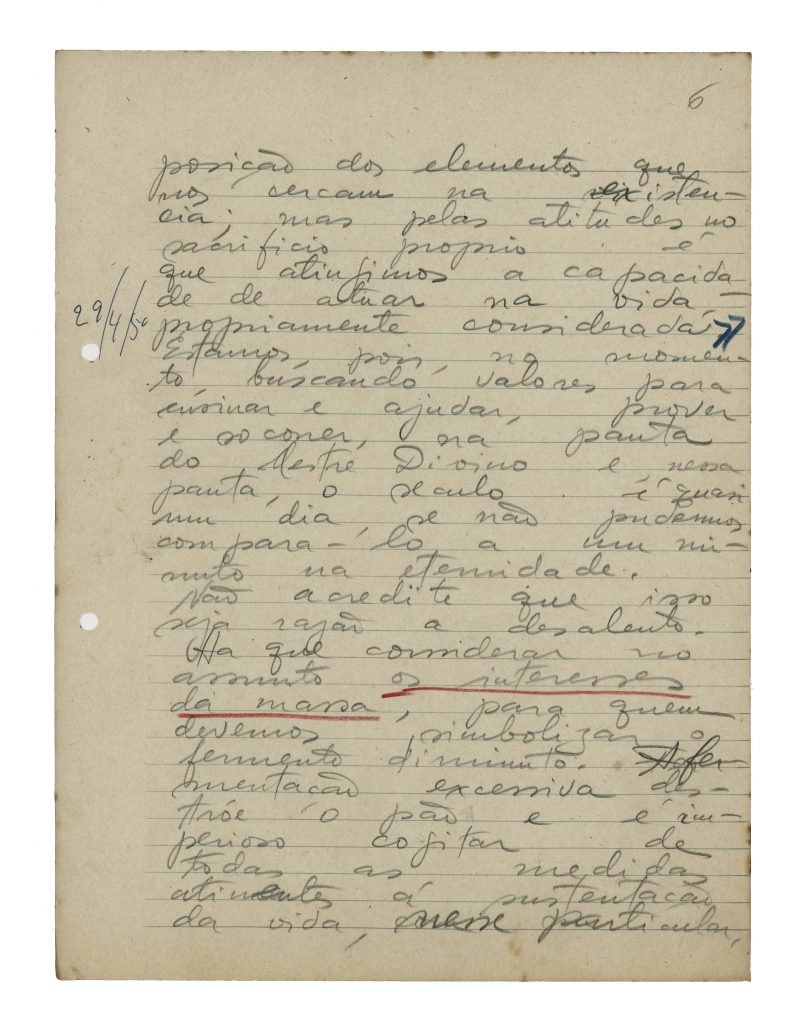 6
posição dos elementos que
nos cercam na existen-
cia; mas pelas atitudes no
sacrificio proprio é
que atingimos a capacida
de de atuar na vida,
29/4/50
propriamente considerada"
Estamos, pois, no momen-
to, buscando valores para
ensinar e ajudar, prover
e socorrer, na pauta
do Mestre Divino e nessa
pauta, o seculo é quasi
um dia, se não pudermos
compara-lo a um mi-
nuto na eternidade.
Não acredite que isso
seja razão a desalento.
Ha que considerar no
assunto os interesses
da massa, para quem
devemos simbolizar o
fermento diminuto. A fer-
mentação excessiva des-
tróe o pão e é im-
perioso cogitar de
todas as medidas
atinentes á sustentação
da vida, nesse particular,